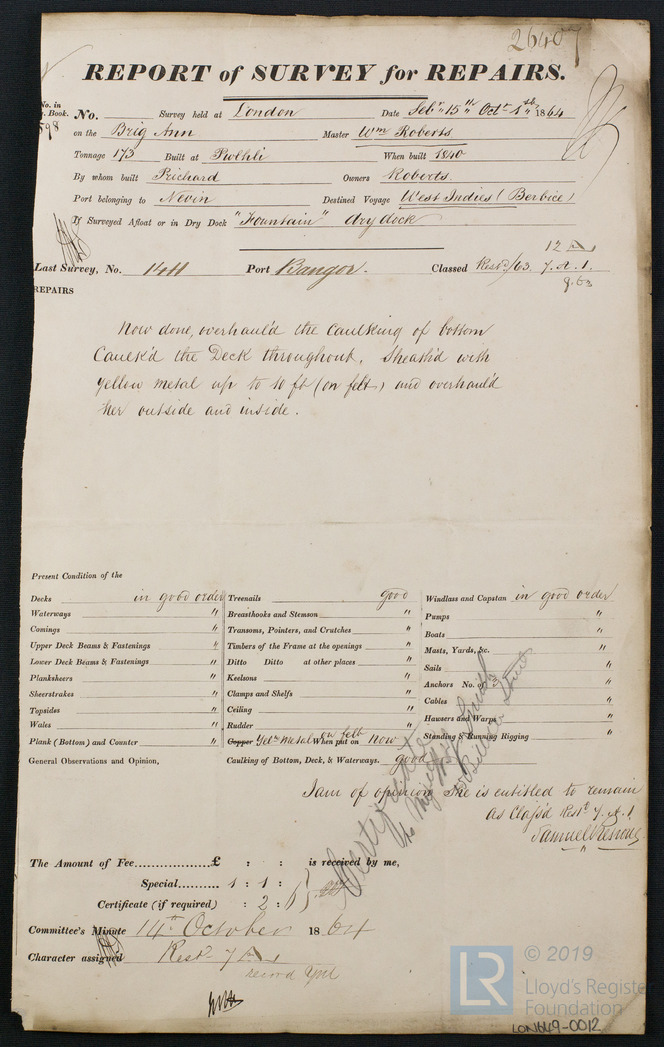 26407
REPORT of SURVEY for REPAIRS.
No. in
Book.
598
No. Survey held at London Date Sebr 15th Octr 1st 1864
on the Brig Ann Master Wm Roberts
Tonnage 173 Built at Pwlhli When built 1840
By whom built Prichard Owners Roberts.
Port belonging to Nevin Destined Voyage West Indies (Berbice)
If Surveyed Afloat or in Dry Dock "Fountain" dry dock
12 A 1
Last Survey, No. 1411 Port Bangor. Classed Restd/63. 7. A. 1.
8.63
REPAIRS
Now done, overhaul'd the Caulking of bottom
Caulk'd the Deck throughout. Sheath'd with
yellow metal up to 10 ft (on felt) and overhaul'd
her outside and inside.
Present Condition of the
Decks in good order Treenails good Windlass and Capstan in good order
Waterways " Breasthooks and Stemson " Pumps "
Comings " Transoms, Pointers, and Crutches " Boats "
Upper Deck Beams & Fastenings " Timbers of the Frame at the openings " Masts, Yards, &c. "
Lower Deck Beams & Fastenings " Ditto Ditto at other places " Sails "
Planksheers " Keelsons " Anchors No. of 3 "
Sheerstrakes " Clamps and Shelfs " Cables "
Topsides " Ceiling " Hawsers and Warps "
Wales " Rudder " Standing & Running Rigging "
Plank (Bottom) and Counter " Copper Yelr Metal When put on on felt Now
General Observations and Opinion, Caulking of Bottom, Deck, & Waterways. good
Certificate
to
Smith
Billiter Street
I am of opinion She is entitled to remain
as Class'd Restd 7. A. 1
Samuel
The Amount of Fee £ : : is received by me,
Special 1 : 1 :
Certificate (if required) : 2 : 6
Committee's Minute 14th October 1864
Character assigned Restd 7 A 1
record YM
LR © 2019
Lloyd's Register
Foundation
LON649-0012